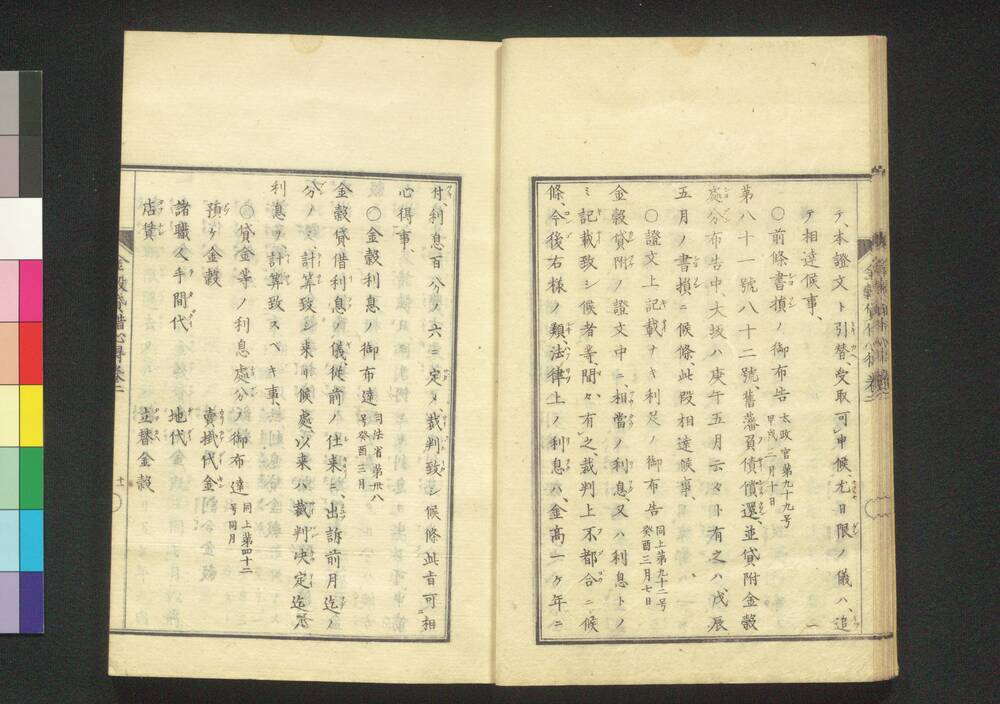 テ、本證文ト引替受取可申候、尤日限ノ儀ハ、追
テ相達候事、
〇前條書損ノ御布告 太政官第九十九号 甲戌三月十日
第八十一號八十二號、舊藩負債償還、並貸附金穀
處分布告中大坂ハ庚午五月云々卜有之ハ戊辰
五月ノ書損ニ候條此段相達候事、
〇證文上記載ナキ利足ノ御布告 同上第九十二号 癸酉三月七日
金穀貸附ノ證文中ニ、相當ノ利息、又ハ利息トノ
ミ記載致シ候者等、間々有之、裁判上不都合ニ候
條、今後右樣ノ類、法律上ノ利息ハ、金高一ヶ年ニ
付、利息百分ノ六ニ定メ裁判致シ候條此旨可相
心得事、
〇金穀利息ノ御布達 司法省第卅八号癸酉三月
金穀貸借利息ノ儀、從前ノ仕来ニ、出訴前月迄ノ
分ノミ、計算致シ来リ候處、以来ハ裁判决定迄ノ
利息ヲ計算致スベキ事、
〇貸金等ノ利息處分ノ御布達 同上第四十二号同月
預ケ金穀 賣掛代金
諸職人手間代 地代
店賃 立替金穀
金穀貸借心得卷二 十